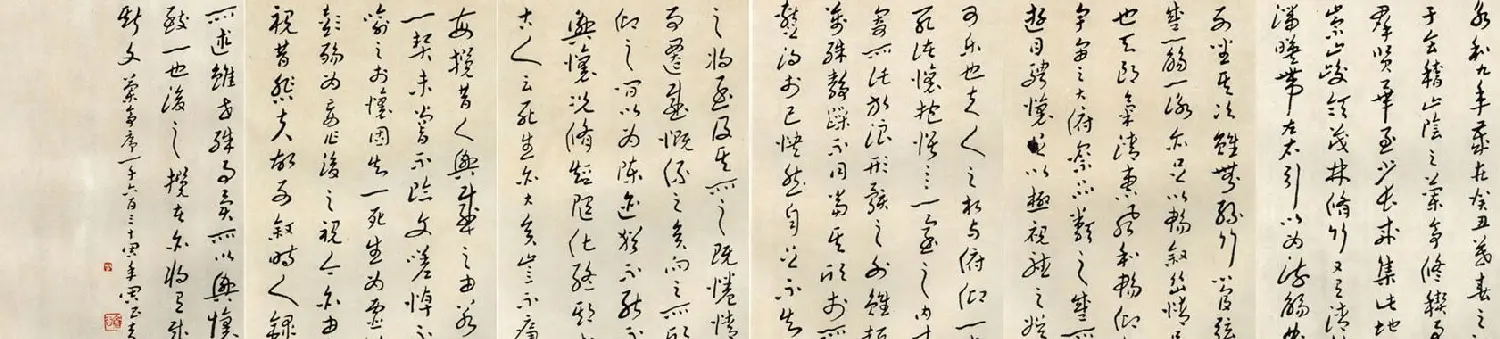 永和九年歲在癸丑暮春之
于會稽山陰之蘭亭修稧事
群賢畢至少長咸集此地
崇山峻領茂林修竹又有清
湍暎帶左右引以為流觴曲
列坐其次雖無絲竹管弦
盛一觴一詠亦足以暢敘幽情是
也天朗氣清惠風和暢仰
宇宙之大俯察品類之盛所
遊目騁懷足以極視聽之娛
可樂也夫人之相與俯仰一
取諸懷抱悟言一室之內或
寄所託放浪形骸之外雖趣
萬殊靜躁不同當其欣於所
暫得於己快然自足不知
之將至及其所之既惓情
事遷感慨係之矣向之所欣
仰之間以為陳迹猶不能不
興懷況修短隨化終期
古人云死生亦大矣豈不痛
每攬昔人興感之由若
一契未嘗不臨文嗟悼不
喻之於懷固知一死生為虛
彭殤為妄作後之視今亦由
視昔悲夫故列敘時人錄
所述雖世殊事異所以興懷
致一也後之攬者亦將有感
斯文 蘭亭序一千六百三十四年